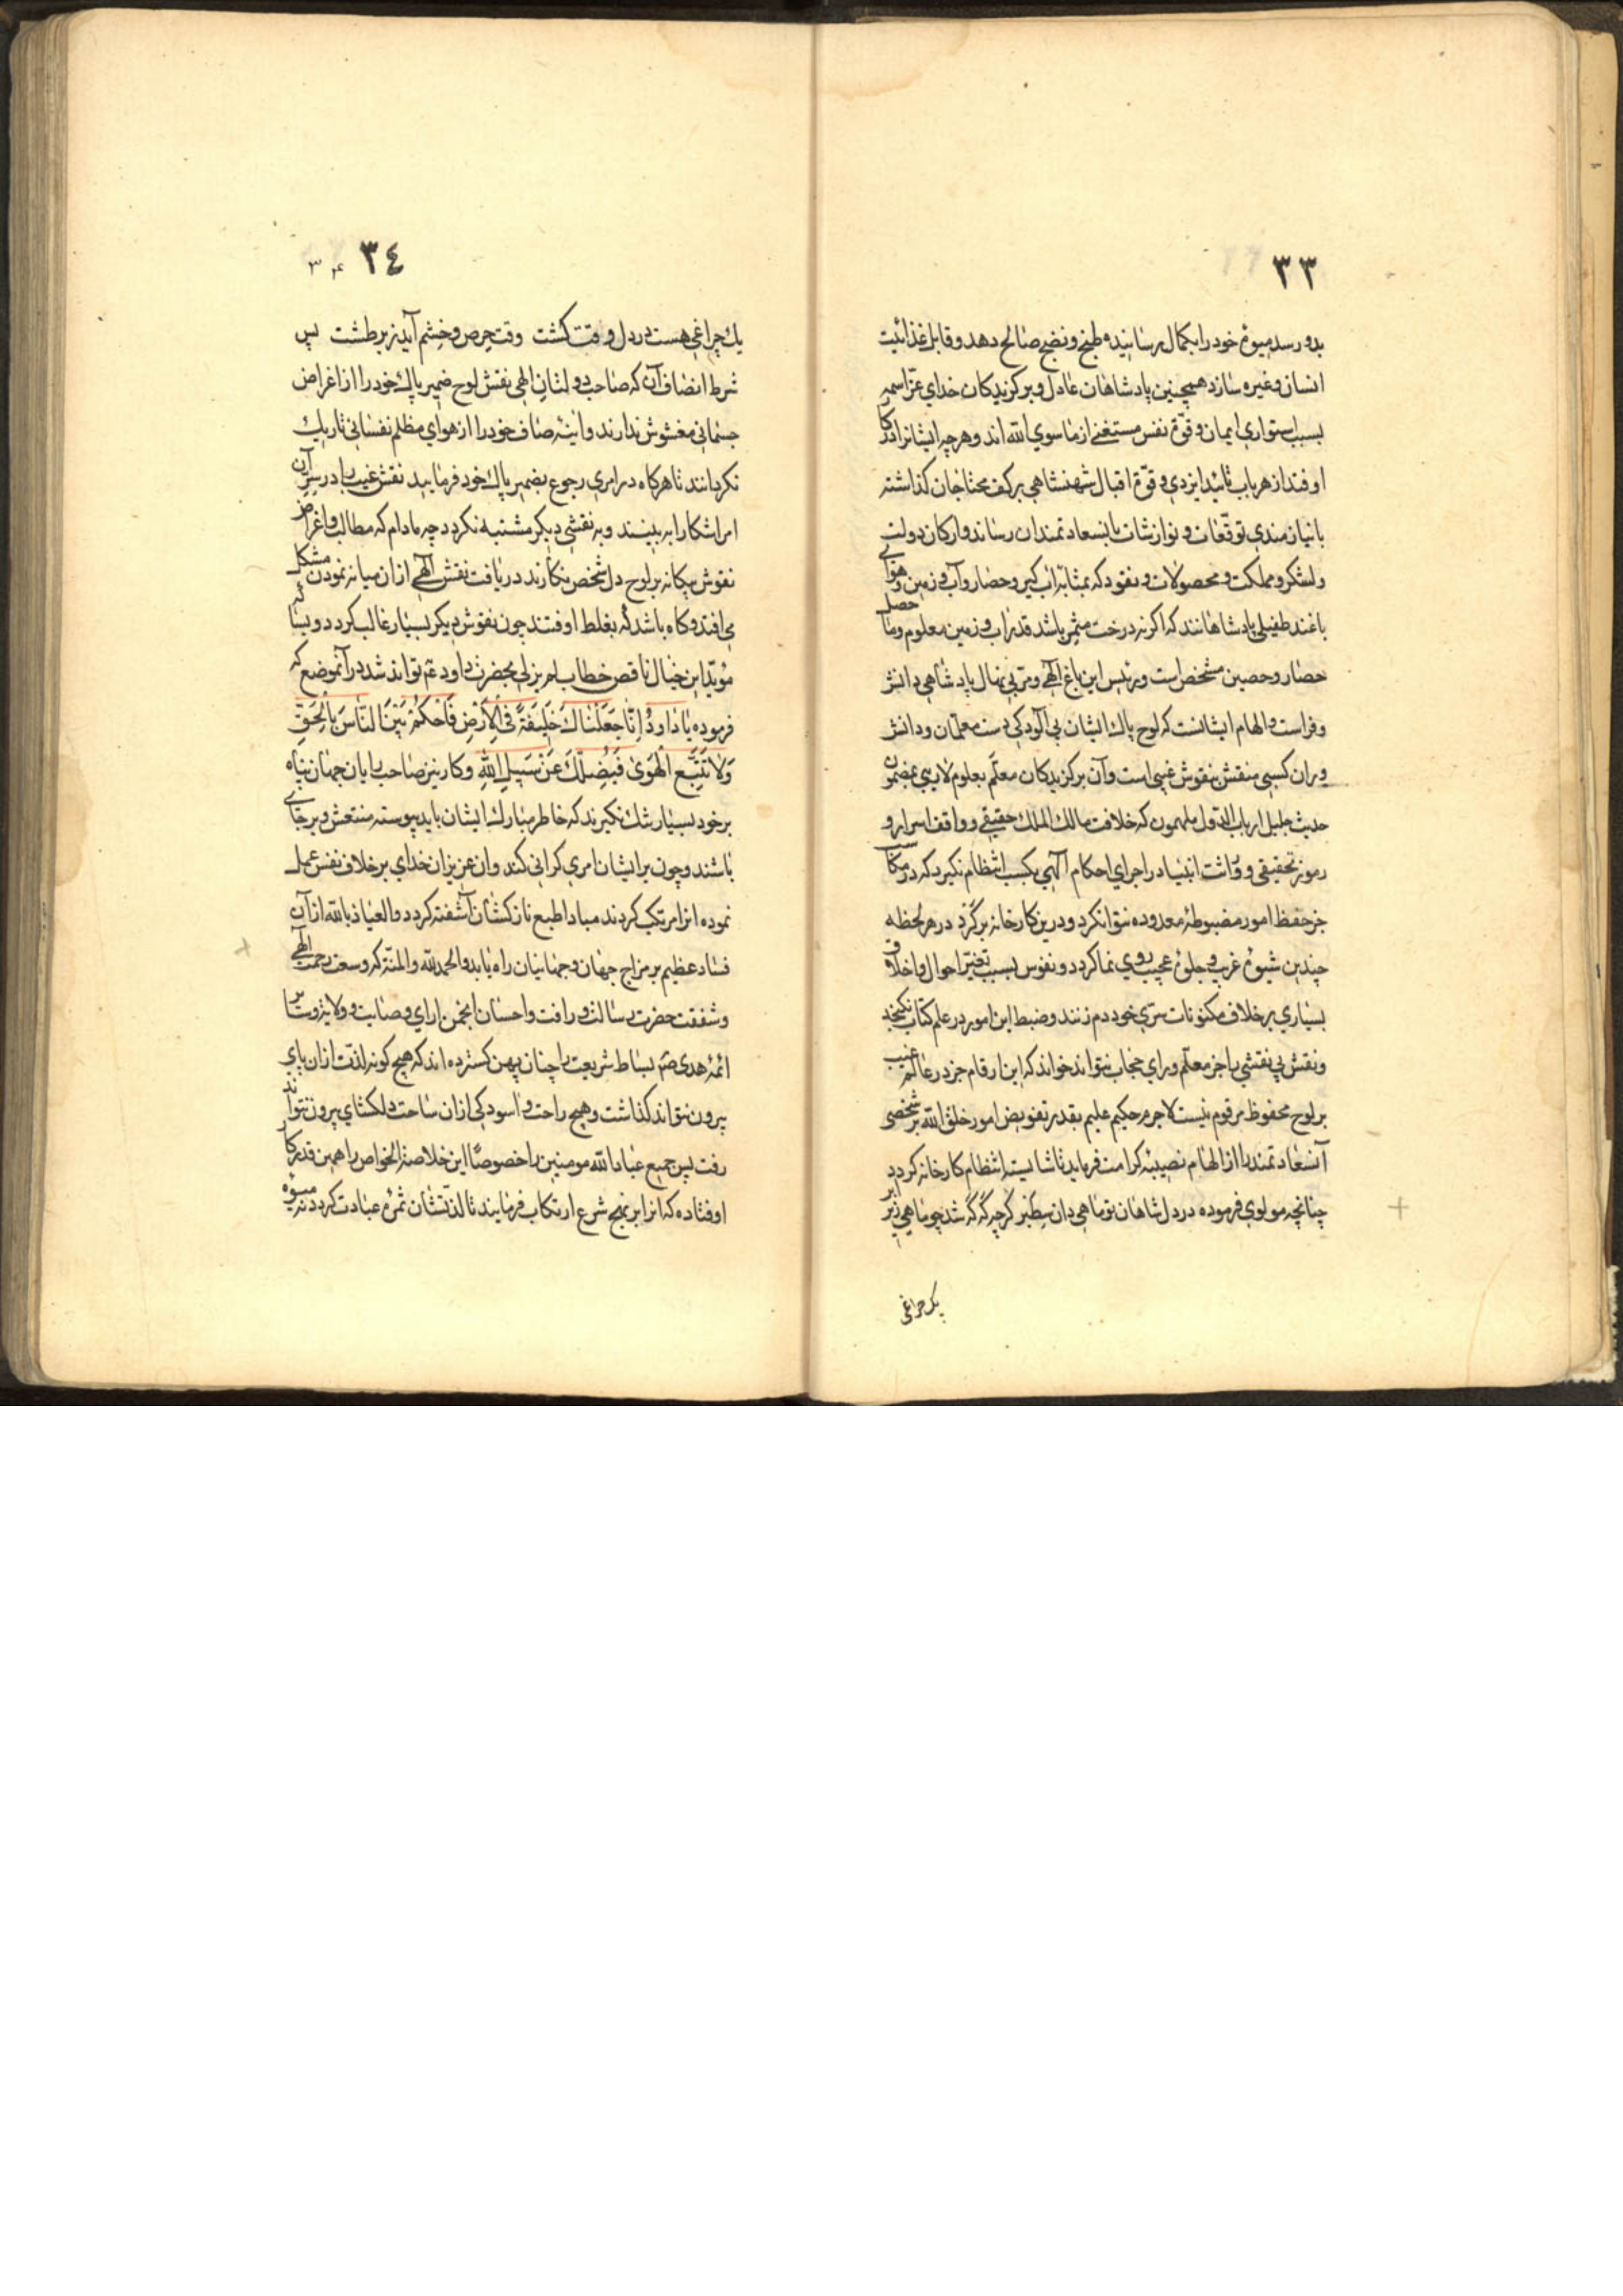 ٣٣
بدو رسد میوهٔ خود را بکمال رسانیده طبخ و نضجی صالح دهد و قابل غذائیت
انسان و غیره سازد همچنین پادشاهان عادل و برکزیدکان خدای عزّ اسمه
بسبب استواری ایمان و قوّة نفس مستغنی از ماسوی الله اند و هرچه ایشانرا در کار
اوفتد از هر باب تائید ایزدی و قوّة اقبال شهنشاهی بر کف محتاجان کذاشته
با نیازمندی توقّعات و نوازشات بانسعادتمندان رساند و ارکان دولت
و لشکر و مملکت و محصولات و نقود که بمثابه اب کیر و حصار و آب و زمین و هوای
باغند طفیلی پادشاهانند که اکر نه درخت مثمر باشد قدر اب و زمین معلوم و ما حصل
حصار و حصین مشخص است و رئیس این باغ الهی و مربی نهال پادشاهی دانش
و فراست و الهام ایشانست که لوح پاك ایشان بی الودکی دست معلّمان و دانش
وران کسبی منقش بنقوش غیبی است و آن برکزیدکان معلّم بعلوم لاریبی بمضمون
حدیث جلیل ارباب الدّول ملهمون که خلافت مالك الملك حقیقی و واقف اسرار و
رموز تحقیقی و وراثت انبیا در اجرای احکام الهی بکسب انتظام نکیرد که در مکاسب
جز حفظ امور مضبوطهٔ معدوده نتوان کرد و درین کارخانه بزرگ در هر لحظه
چندین شیوهٔ غریب و جلوهٔ عجیب روی نما کردد و نفوس بسبب تغیّر احوال و اخلاق
بسیاری بر خلاف مکنونات سری خود دم زنند و ضبط این امور در علم کتاب نکنجد
و نقش بی نقشی را جز معلّم ورای حجاب نتواند خواند که این ارقام جز در عالم غیب
بر لوح محفوظ مرقوم نیست لاجرم حکیم علیم بقدر تفویض امور خلق الله بر شخصی
آنسعادتمند را از الهام نصیبهٔ کرامت فرماید تا شایسته انتظام کارخانه کردد
چنانچه مولوی فرموده در دل شاهان تو ماهی دان سطبر کرچه که که شد چو ماهی زیر ابر
یك چراغی
٣٤
٣۴
یك چراغی هست در دل وقت کشت وقت حرص و خشم آید زیر طشت پس
شرط انصاف آن که صاحب دولتان الهی نقش لوح ضمیر پاك خود را از اغراض
جسمانی مغشوش ندارند و اینهٔ صاف خود را از هوای مظلم نفسانی تاریك
نکردانند تا هرکاه در امری رجوع بضمیر پاك خود فرمایند نقش غیب را در سر آن
امر اشکارا به بینند و به نقشی دیکر مشتبه نکردد چه مادام که مطالب و اغراض
نقوش بیکانه بر لوح دل شخص نکارند دریافت نقش الهی از ان میانه نمودن مشکل
می افتد و کاه باشد که بغلط اوفتند چون نقوش دیکر بسیار غالب کردد و بسا که
مؤیّد این خیال ناقص خطاب لم یزلی بحضرت داود ع‌م تواند شد در آنموضع که
فرموده یَا دَاوُدُ اِنَّا جَعَلْنَاكَ خَلِیفَةً فِی الْاَرْضِ فَاحْکُمْ بَیْنَ النَّاسَ بِالْحَقِّ
وَلَا تَتَّبِعِ الْهَوٰی فَیُضِلَّكَ عَنْ سَبِیلِ اللّٰهِ و کار نیز صاحب رایان جهان پناه
بر خود بسیار تنك نکیرند که خاطر مبارك ایشان باید پیوسته منتعش و برجای
باشند و چون بر ایشان امری کرانی کند و ان عزیزان خدای بر خلاف نفس عمل
نموده انرا مرتکب کردند مبادا طبع نازکشان آشفته کردد و العیاذ بالله از آن
فساد عظیم بر مزاج جهان و جهانیان راه یابد و الحمد لله و المنّة که وسعت رحمت الهی
و شفقت حضرت رسالت و رافت و احسان انجمن ارای وصایت و ولایت و سایر
ائمهٔ هدی ص‌م بساط شریعت را چنان پهن کسترده اند که هیچ کونه لذّت از ان پای
بیرون نتواند کذاشت و هیچ راحت و اسودکی از ان ساحت دلکشای بیرون نتواند
رفت پس جمیع عباد الله مومنین را خصوصًا این خلاصة الخواص را همین قدر کار
اوفتاده که انرا بر نهج شرع ارتکاب فرمایند تا لذّتشان ثمرهٔ عبادت کردد نه میوهٔ